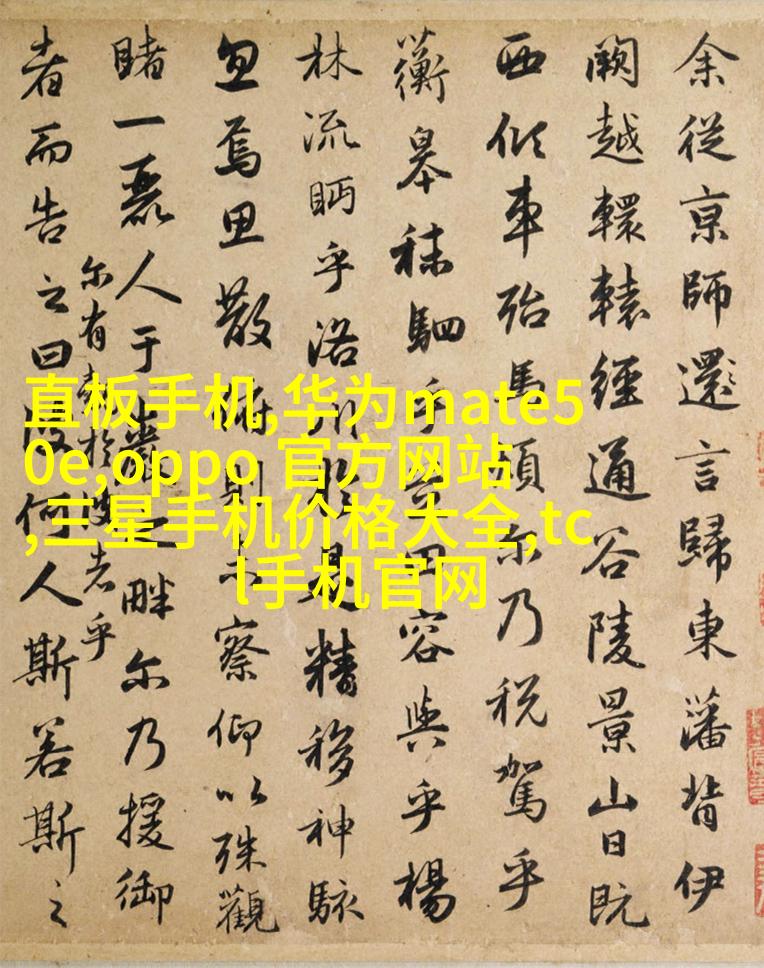 余從京師還言歸東藩背伊
闕越轘轅經通谷陵景山日既
西傾車殆馬煩尔乃税駕乎
蘅皋秣駟乎芝田容與乎楊
林流眄乎洛川於是精移神駭
忽焉思散俯則未察仰以殊觀
睹一麗人于巖之畔尔乃援御
尔有覿於彼者乎
者而告之曰彼何人斯若斯之
直板手机,华为mate5
0e,oppo 官方网站
,三星手机价格大全,tc
l手机官网